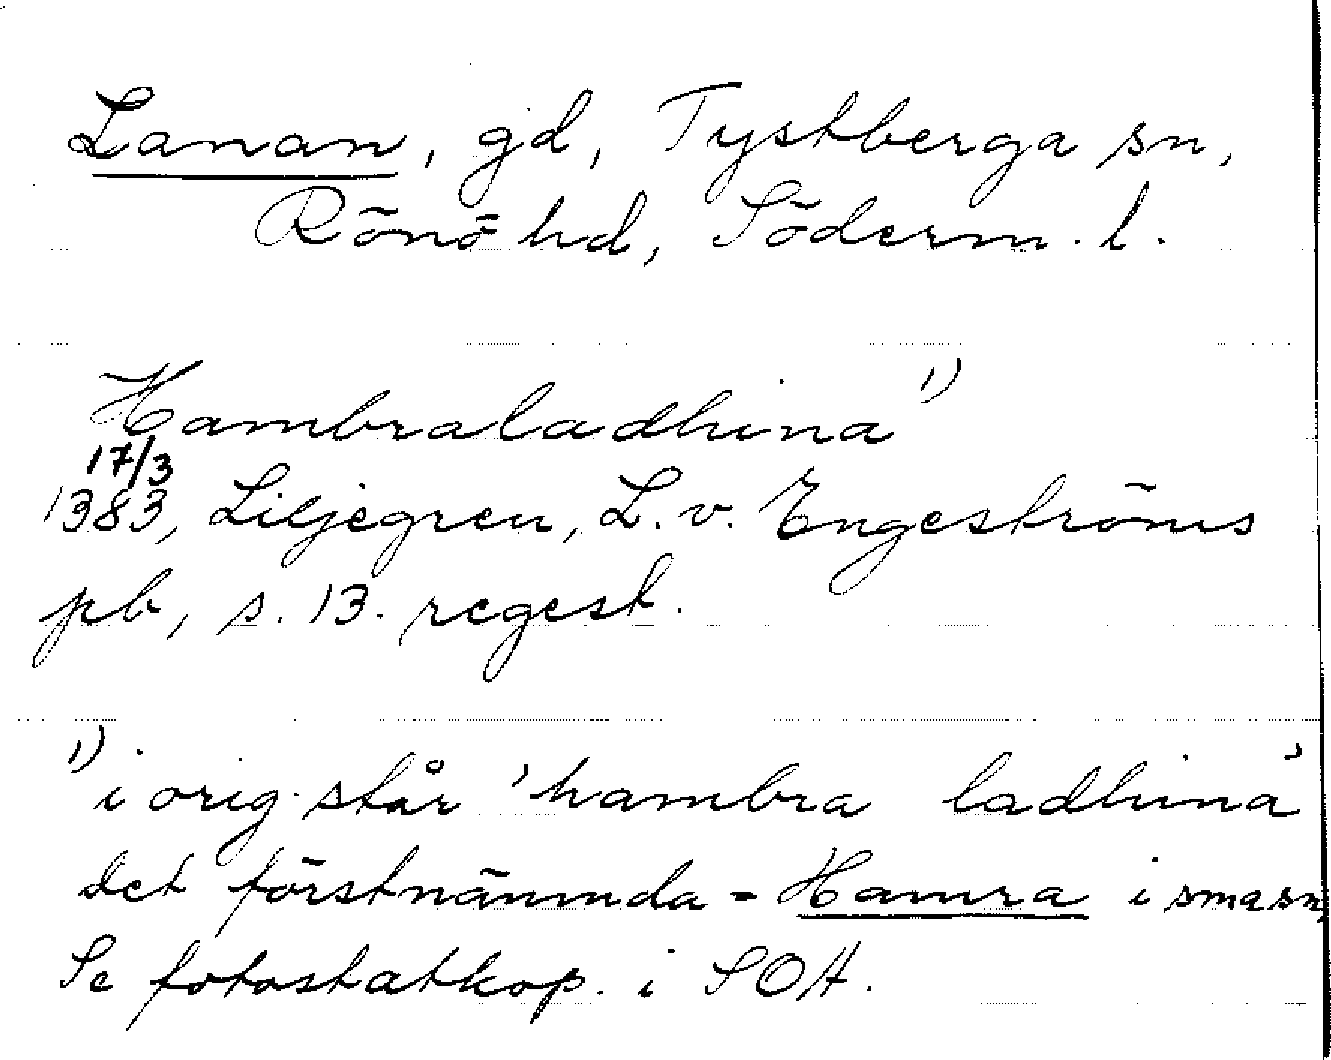 Lanan, gd, Tystberga sn,
Rönö hd, Söderm. l.
Hambraladhina 1)
17/3
1383, Liljegren, L. v. Engeströms
pb, s. 13. regest.
1) i orig. står 'hambra ladhina'
det förstnämnda = Hamra i smasn
Se fotostatkop. i SOA.